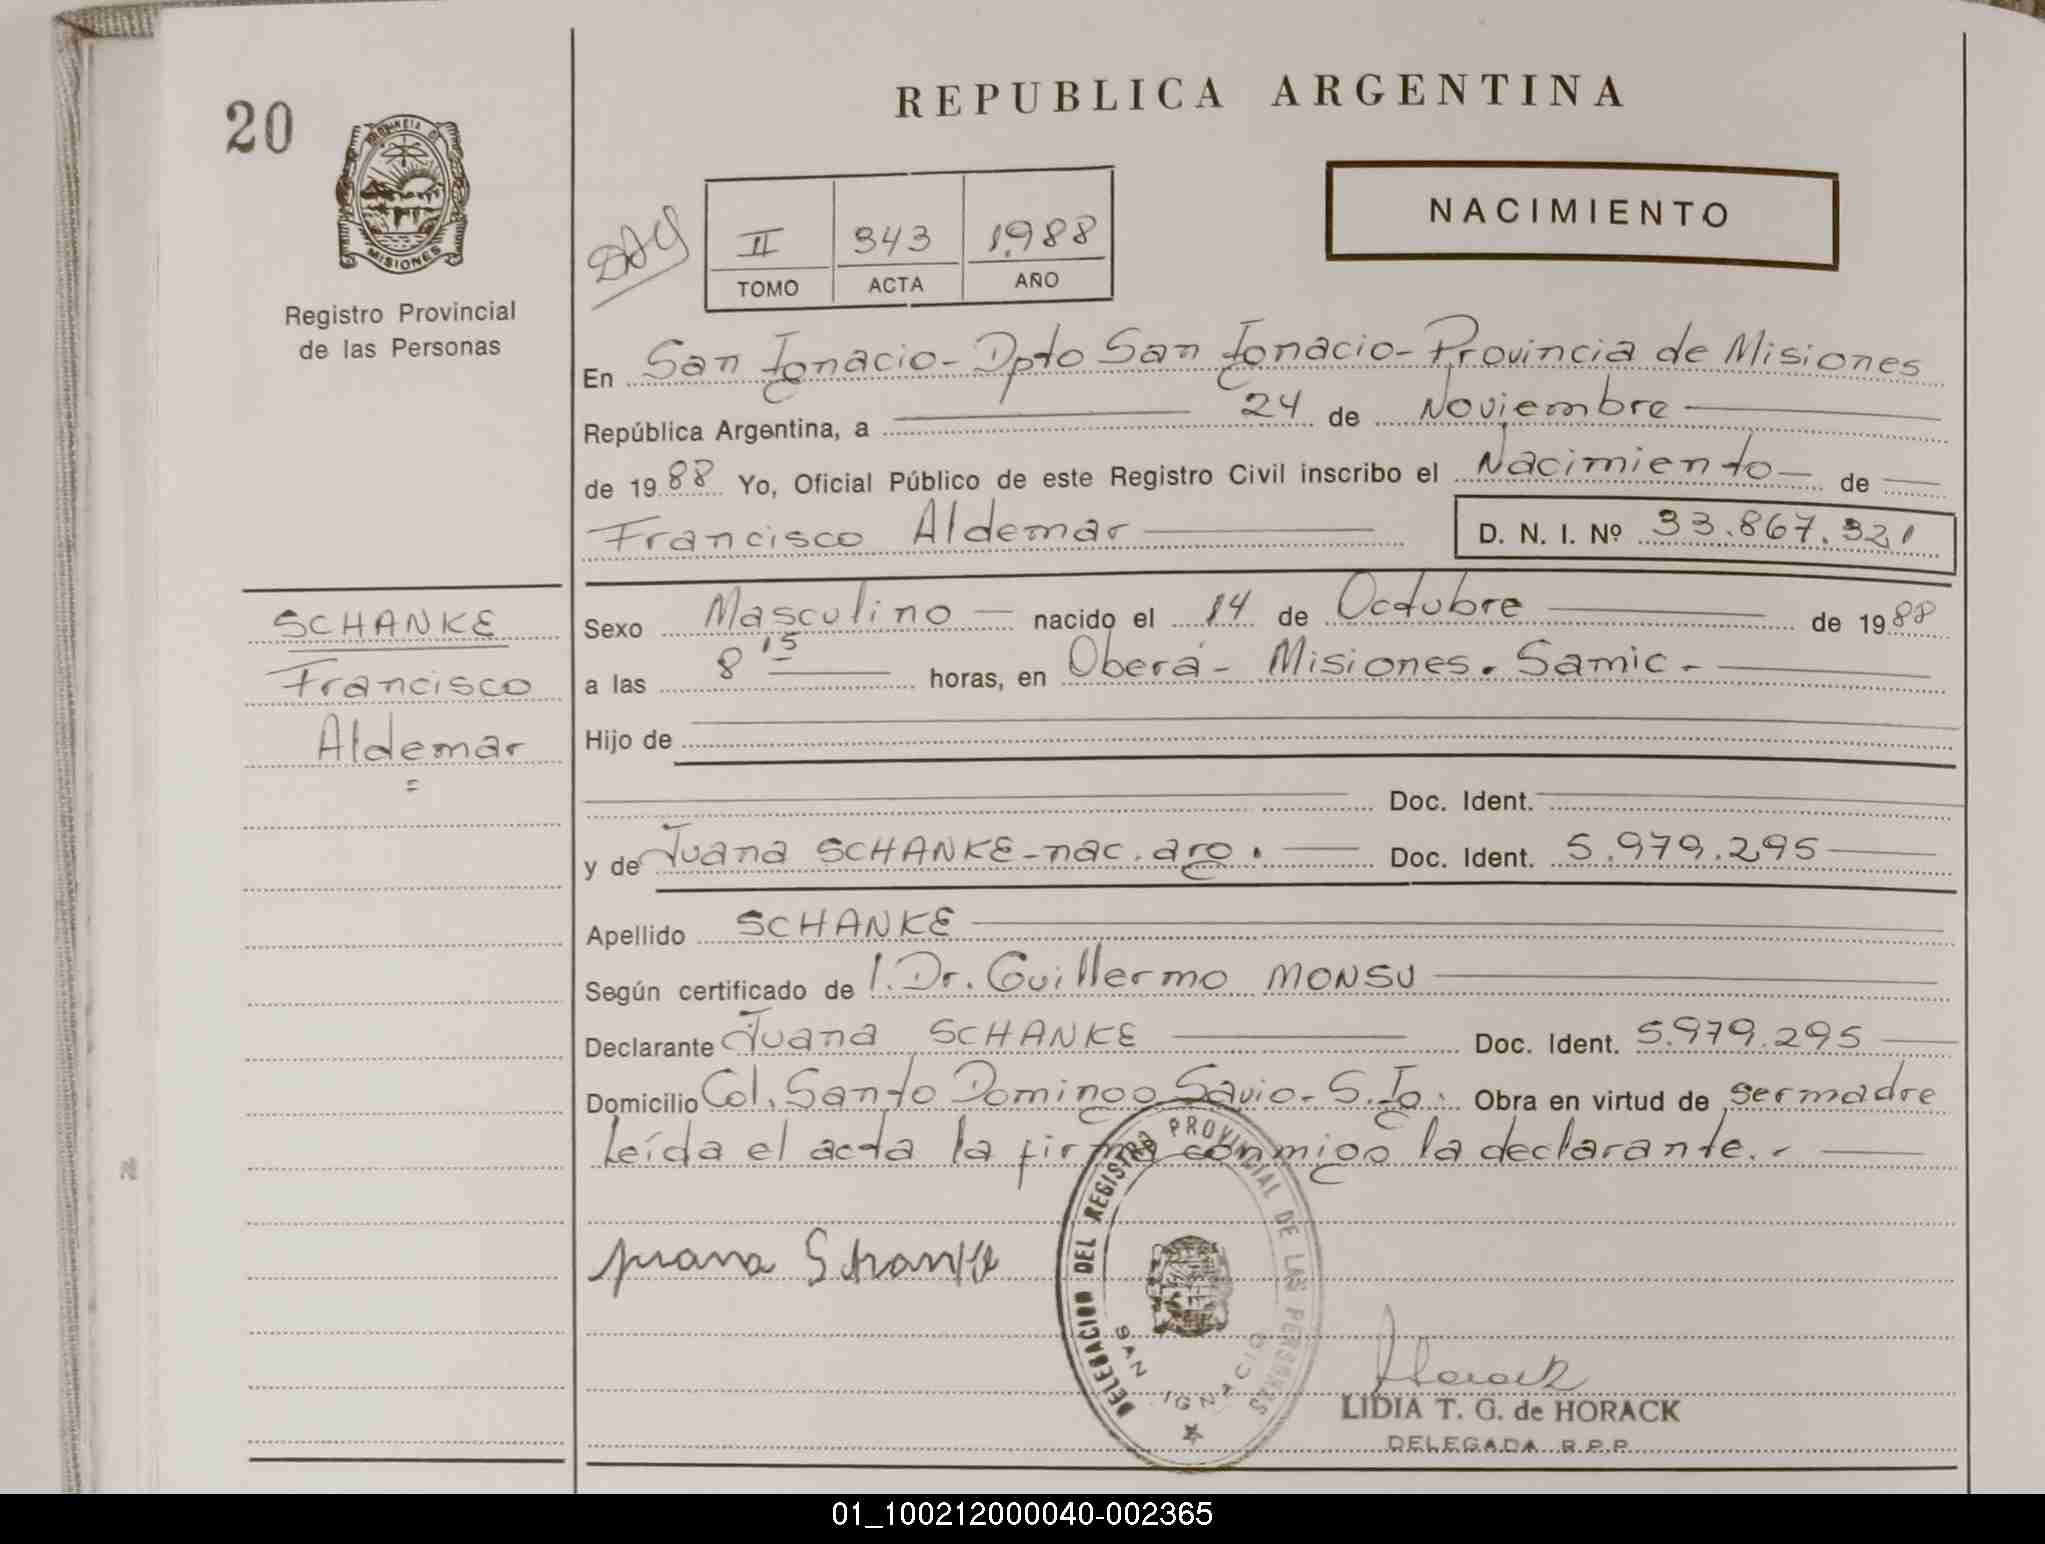 20
REPUBLICA ARGENTINA
NACIMIENTO
PROVINCIA DE
MISIONES
Registro Provincial
de las Personas
II 343 1.988
TOMO ACTA AÑO
En San Ignacio - Dpto San Ignacio - Provincia de Misiones
República Argentina, a 24 de Noviembre
de 1988 Yo, Oficial Público de este Registro Civil inscribo el Nacimiento de
Francisco Aldemar D. N. I. Nº 33.867.321
SCHANKE
Francisco
Aldemar
Sexo Masculino nacido el 14 de Octubre de 1988
a las 8 15 horas, en Oberá - Misiones. Samic -
Hijo de
Doc. Ident.
y de Juana SCHANKE - nac. arg. Doc. Ident. 5.979.295
Apellido SCHANKE
Según certificado de l. Dr. Guillermo MONSU
Declarante Juana SCHANKE Doc. Ident. 5.979.295
Domicilio Col. Santo Domingo Savio - S. Ig. Obra en virtud de ser madre
Leída el acta la firma conmigo la declarante. -
DELEGACION DEL REGISTRO PROVINCIAL DE LAS PERSONAS
SAN IGNACIO
Juana Schanke
Horack
LIDIA T. G. de HORACK
DELEGADA R.P.P.
01_100212000040-002365